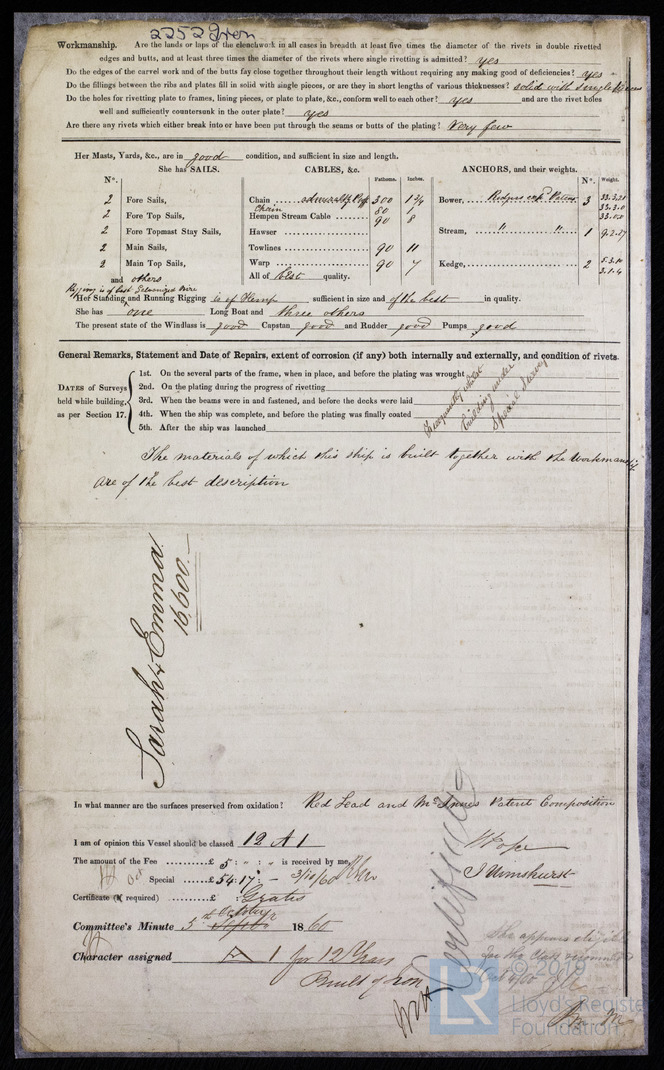 2252 Iron
Workmanship. Are the lands or laps of the clenchwork in all cases in breadth at least five times the diameter of the rivets in double rivetted
edges and butts, and at least three times the diameter of the rivets where single rivetting is admitted? yes
Do the edges of the carvel work and of the butts fay close together throughout their length without requiring any making good of deficiencies? yes
Do the fillings between the ribs and plates fill in solid with single pieces, or are they in short lengths of various thicknesses? solid with single
Do the holes for rivetting plate to frames, lining pieces, or plate to plate, &c., conform well to each other? yes and are the rivet holes
well and sufficiently countersunk in the outer plate? yes
Are there any rivets which either break into or have been put through the seams or butts of the plating? Very few
Her Masts, Yards, &c., are in good condition, and sufficient in size and length.
She has SAILS. CABLES, &c. Fathoms. Inches. ANCHORS, and their weights.
N°. N°. Weight.
2 Fore Sails, Chain 300 Bower, 3 33.3.21
Chain 80 33.3.0
2 Fore Top Sails, Hempen Stream Cable 90 8
2 Fore Topmast Stay Sails, Hawser Stream, " " 1 9.2.27
2 Main Sails, Towlines 90 11
2 Main Top Sails, Warp 90 7 Kedge, 2 5.3.10
3.1.4
and others All of best quality.
Rigging is of best Galvanized Wire
Her Standing and Running Rigging is of Hemp sufficient in size and of the best in quality.
She has one Long Boat and three others
The present state of the Windlass is good Capstan good and Rudder good Pumps good
General Remarks, Statement and Date of Repairs, extent of corrosion (if any) both internally and externally, and condition of rivets.
DATES of Surveys held while building, as per Section 17.
1st. On the several parts of the frame, when in place, and before the plating was wrought
2nd. On the plating during the progress of rivetting
3rd. When the beams were in and fastened, and before the decks were laid
4th. When the ship was complete, and before the plating was finally coated
5th. After the ship was launched
Frequently whilst
building under
Special Survey
The materials of which this ship is built together with the Workmanship
are of the best description
Sarah & Emma
16,600.—
In what manner are the surfaces preserved from oxidation? Red Lead and Mc Innes Patent Composition
I am of opinion this Vessel should be classed 12 A 1
The amount of the Fee £ 5 : " : " is received by me,
Special £ 54 : 17 : — 3/10/60
Certificate (if required) £ : Gratis
Committee's Minute 5th October 1860
Character assigned A 1 for 12 Years
Built of Iron
She appears eligible
for the class recommended
Oct 4/60
© 2019
Lloyd's Register
Foundation
LR